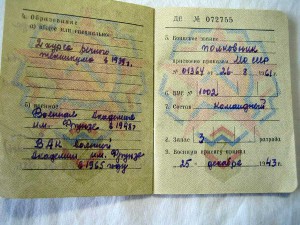 4. Образование
а) общее или специальное
2 курса речного
техникума в 1939 г.
б) военное
Военная Академия
им. Фрунзе в 1948 г.
ВАК военной
Академии им. Фрунзе
в 1965 году
№ 072755
5. Воинское звание
полковник
присвоено приказом МО СССР
№ 01364 от 26 - 8 1961 г.
6. ВУС № 1002
7. Состав командный
8. Запас 3 разряда
9. Военную присягу принял
25 декабря 1943 г.